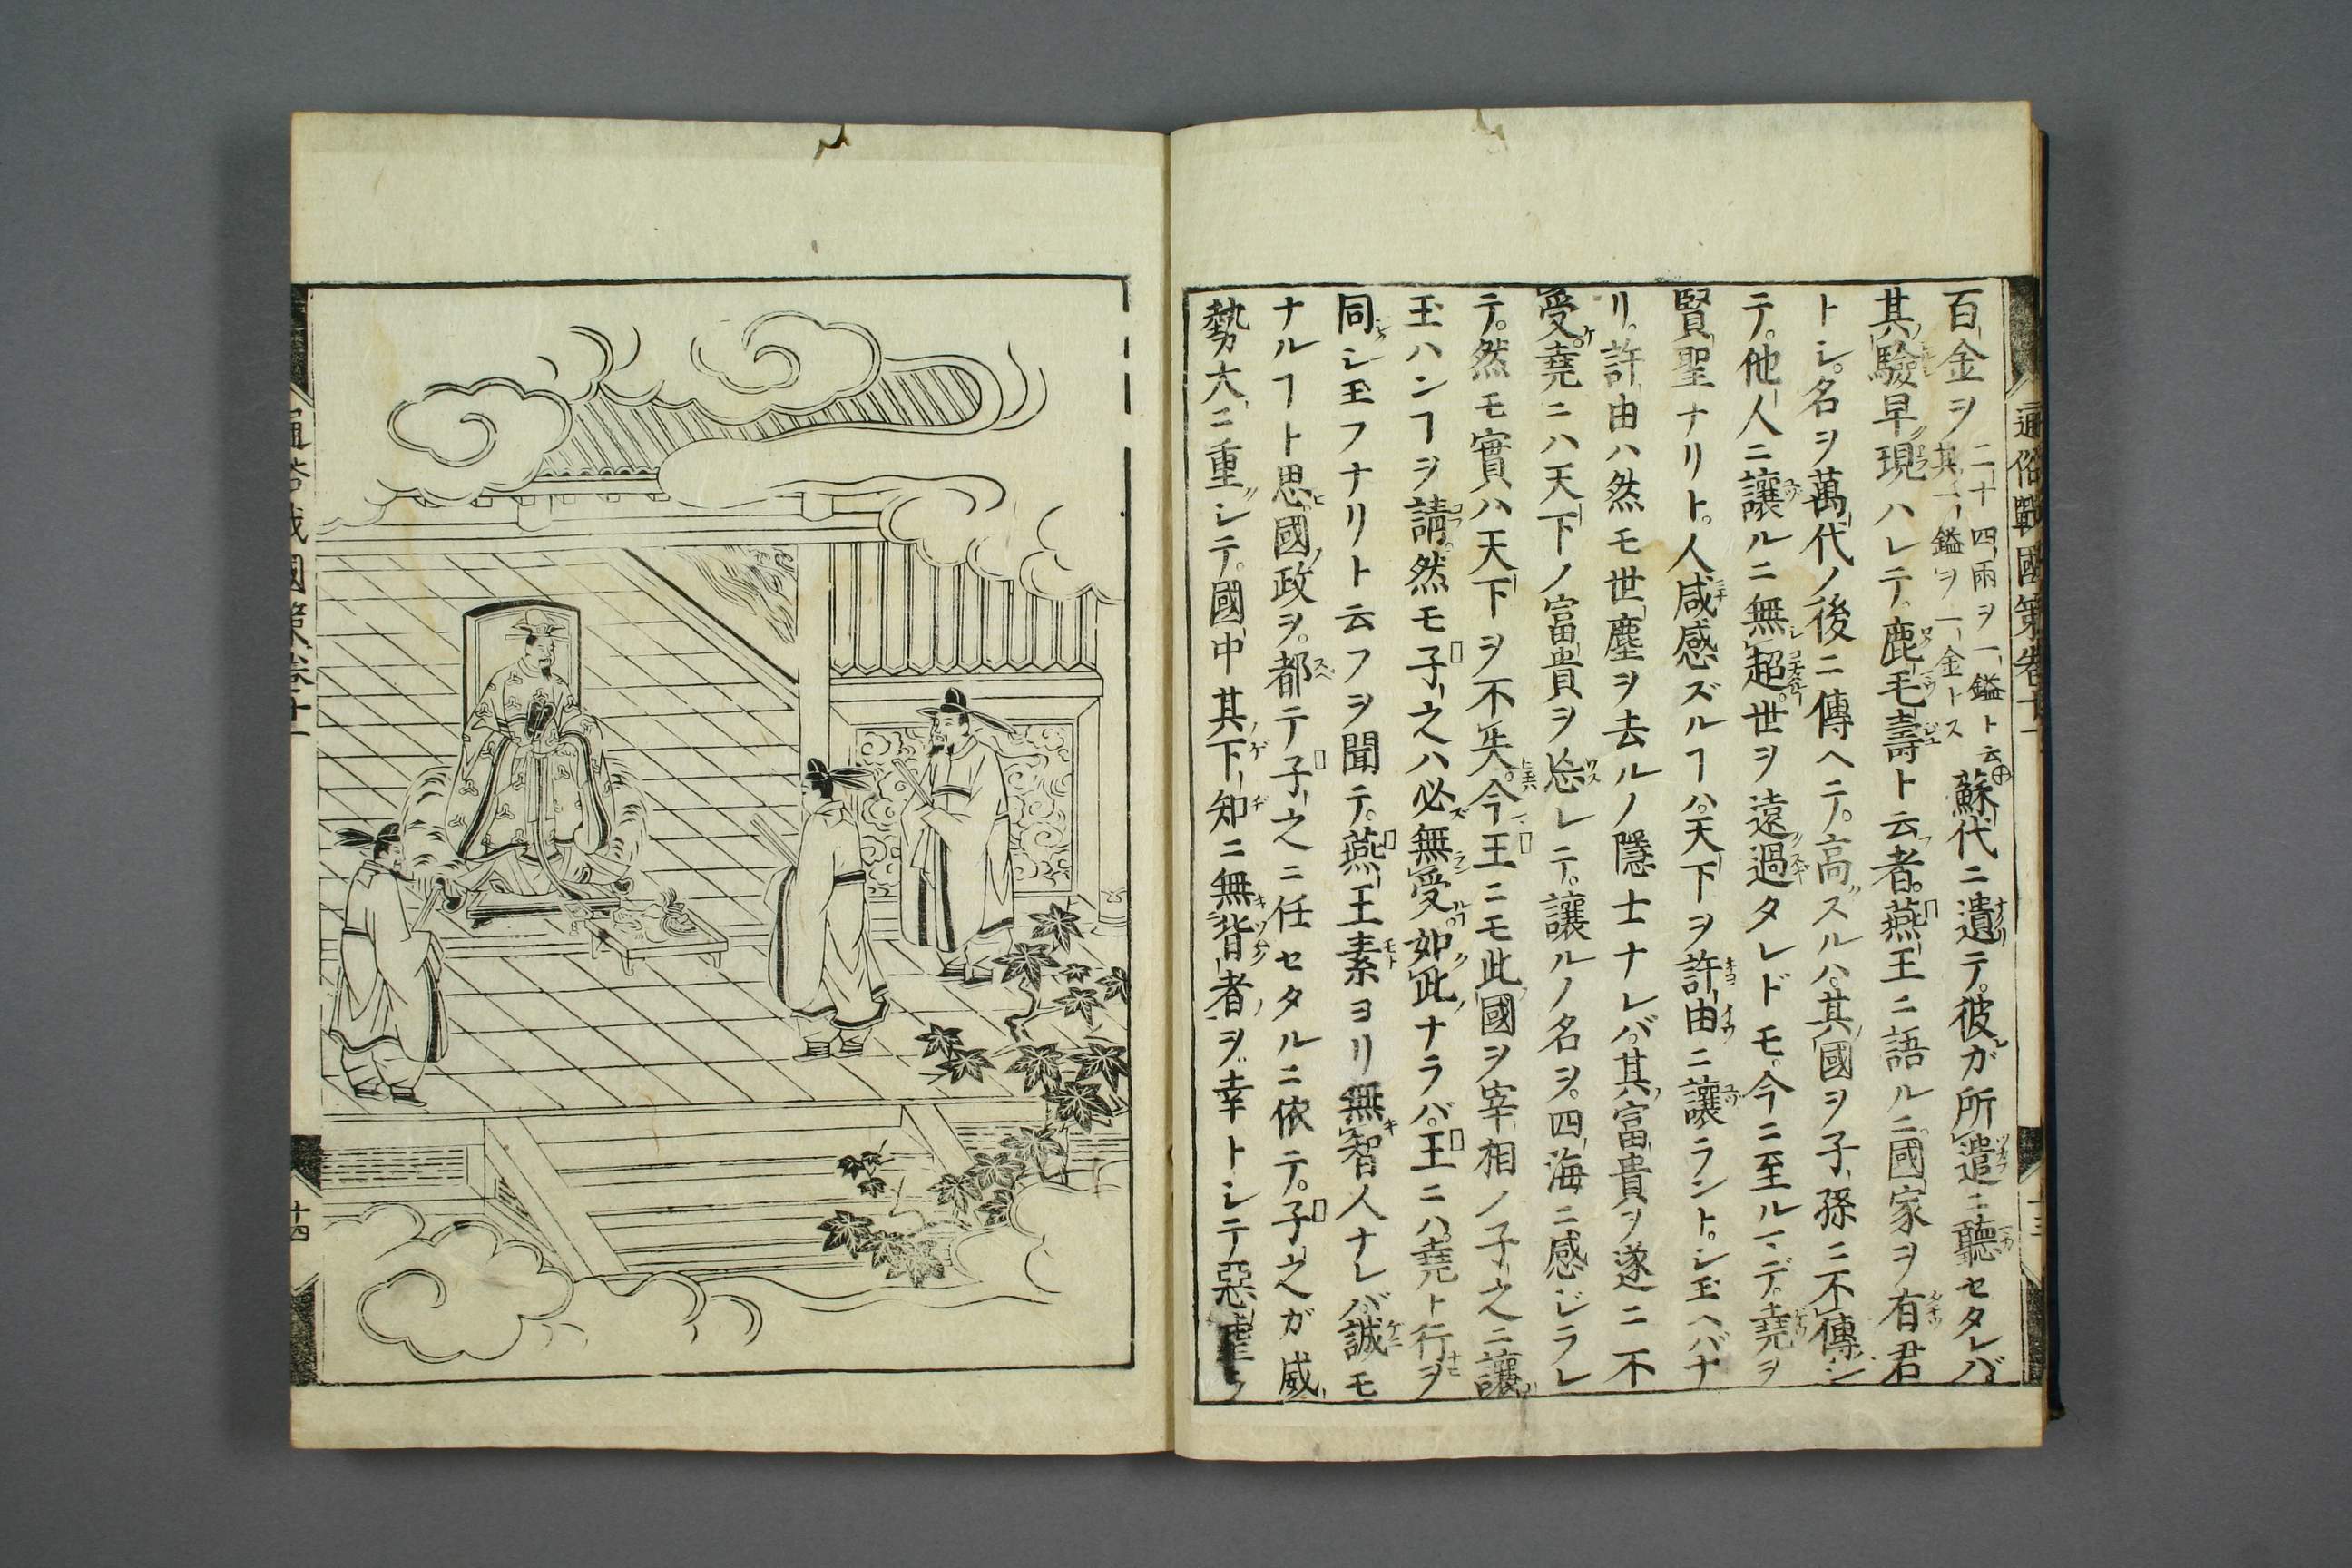 通俗戰國策卷十一
十三
百金ヲ二十四兩ヲ一鎰ト云其一鎰ヲ一金トス蘇代ニ遺テ。彼ガ所遣ニ聽セタレバ
其驗早現ハレテ。鹿毛壽ト云者。燕王ニ語ルニ。國家ヲ有君
トシ。名ヲ萬代ノ後ニ傳ヘテ。高スルハ。其國ヲ子孫ニ不傳シ
テ。他人ニ讓ルニ無超。世ヲ遠過タレドモ。今ニ至ルマデ。堯ヲ
賢聖ナリト。人咸感ズルヿハ。天下ヲ許由ニ讓ラント。シ玉ヘバナ
リ。許由ハ然モ世塵ヲ去ルノ隱士ナレバ。其富貴ヲ遂ニ不
受。堯ニハ天下ノ富貴ヲ忩レテ。讓ルノ名ヲ。四海ニ感ジラレ
テ。然モ實ハ天下ヲ不失。今王ニモ此國ヲ宰相ノ子之ニ讓
玉ハンヿヲ請。然モ子之ハ必無受。如此ナラバ。王ニハ。堯ト行ヲ
同シ玉フナリト云フヲ聞テ。燕王素ヨリ無智人ナレバ。誠モ
ナルヿト思。國政ヲ。都テ子之ニ任セタルニ依テ。子之ガ威
勢大ニ重シテ。國中其下知ニ無背者ヲ。幸トシテ惡虐ヲ
通俗戰國策卷十一
十四